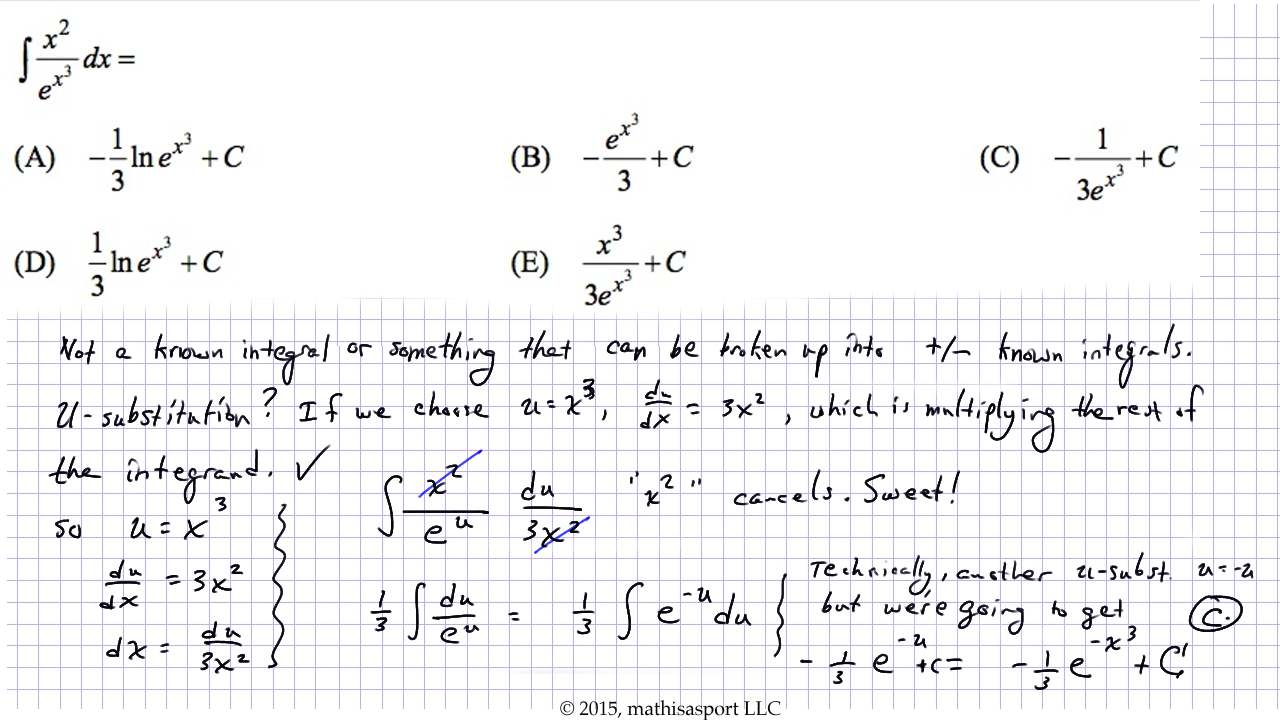 ∫ x²/e^(x³) dx =
(A) -1/3 ln e^(x³) + C (B) -e^(x³)/3 + C (C) -1/(3e^(x³)) + C
(D) 1/3 ln e^(x³) + C (E) x³/(3e^(x³)) + C
Not a known integral or something that can be broken up into +/- known integrals.
U-substitution? If we choose u = x³, du/dx = 3x², which is multiplying the rest of
the integrand. ✓
so u = x³
du/dx = 3x²
dx = du/3x²
∫ x²/e^u du/3x² "x²" cancels. Sweet!
1/3 ∫ du/e^u = 1/3 ∫ e^(-u) du
Technically, another u-subst. u = -u
but we're going to get C.
-1/3 e^(-u) + C = -1/3 e^(-x³) + C
© 2015, mathisasport LLC